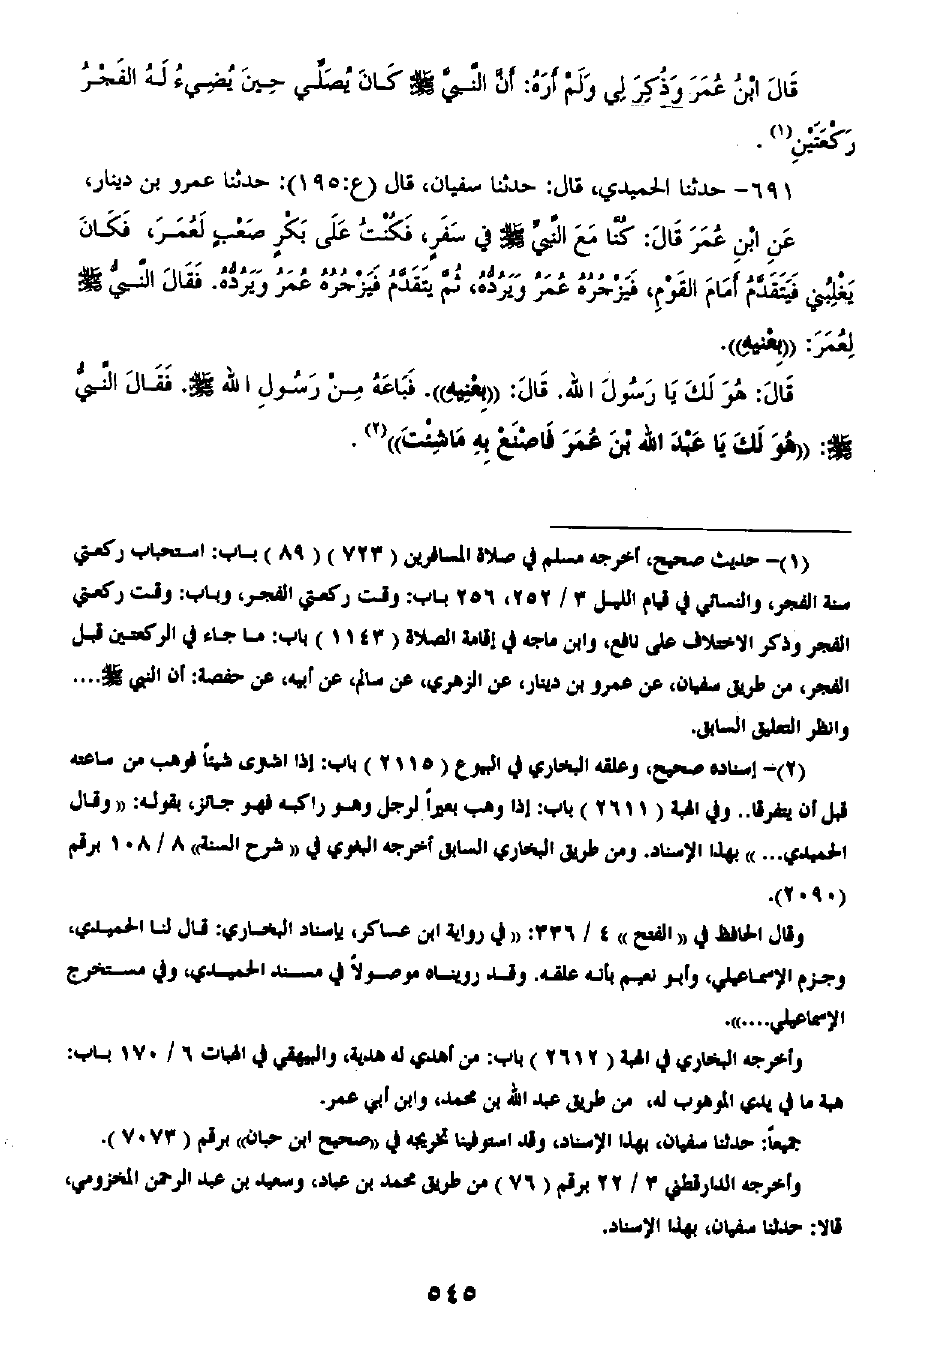 قَالَ ابْنُ عُمَرَ وَذُكِرَ لِي وَلَمْ أَرَهُ: أَنَّ النَّبِيَّ ﷺ كَانَ يُصَلِّي حِينَ يُضِيءُ لَهُ الفَجْرُ
رَكْعَتَيْنِ(١) .
٦٩١- حدثنا الحميدي، قال: حدثنا سفيان، قال (ع:١٩٥): حدثنا عمرو بن دينار،
عَنِ ابْنِ عُمَرَ قَالَ: كُنَّا مَعَ النَّبِيِّ ﷺ فِي سَفَرٍ، فَكُنْتُ عَلَى بَكْرٍ صَعْبٍ لَعُمَرَ، فَكَانَ
يَغْلِبُنِي فَيَتَقَدَّمُ أَمَامَ القَوْمِ، فَيَزْجُرُهُ عُمَرُ وَيَرُدُّهُ، ثُمَّ يَتَقَدَّمُ فَيَزْجُرُهُ عُمَرُ وَيَرُدُّهُ. فَقَالَ النَّبِيُّ ﷺ
لِعُمَرَ: ((بِعْنِيهِ)).
قَالَ: هُوَ لَكَ يَا رَسُولَ الله. قَالَ: ((بِعْنِيهِ)). فَبَاعَهُ مِنْ رَسُولِ الله ﷺ. فَقَالَ النَّبِيُّ
ﷺ: ((هُوَ لَكَ يَا عَبْدَ الله بْنَ عُمَرَ فَاصْنَعْ بِهِ مَاشِئْتَ))(٢) .
(١)- حديث صحيح، أخرجه مسلم في صلاة المسافرين ( ٧٢٣ ) ( ٨٩ ) باب: استحباب ركعتي
سنة الفجر، والنسائي في قيام الليل ٣ / ٢٥٢، ٢٥٦ باب: وقت ركعتي الفجر، وباب: وقت ركعتي
الفجر وذكر الاختلاف على نافع، وابن ماجه في إقامة الصلاة ( ١١٤٣ ) باب: ما جاء في الركعتين قبل
الفجر، من طريق سفيان، عن عمرو بن دينار، عن الزهري، عن سالم، عن أبيه، عن حفصة: أن النبي ﷺ....
وانظر التعليق السابق.
(٢)- إسناده صحيح، وعلقه البخاري في البيوع ( ٢١١٥ ) باب: إذا اشترى شيئاً فوهب من ساعته
قبل أن يتفرقا.. وفي الهبة ( ٢٦١١ ) باب: إذا وهب بعيراً لرجل وهو راكبه فهو جائز، بقوله: (( وقال
الحميدي... )) بهذا الإسناد. ومن طريق البخاري السابق أخرجه البغوي في (( شرح السنة)) ٨ / ١٠٨ برقم
(٢٠٩٠).
وقال الحافظ في (( الفتح )) ٤ / ٣٣٦: (( في رواية ابن عساكر، بإسناد البخاري: قال لنا الحميدي،
وجزم الإسماعيلي، وأبو نعيم بأنه علقه. وقد رويناه موصولاً في مسند الحميدي، وفي مستخرج
الإسماعيلي....)).
وأخرجه البخاري في الهبة ( ٢٦١٢ ) باب: من أهدي له هدية، والبيهقي في الهبات ٦ / ١٧٠ باب:
هبة ما في يدي الموهوب له، من طريق عبد الله بن محمد، وابن أبي عمر.
جميعاً: حدثنا سفيان، بهذا الإسناد، وقد استوفينا تخريجه في ((صحيح ابن حبان)) برقم ( ٧٠٧٣ ).
وأخرجه الدارقطني ٣ / ٢٢ برقم ( ٧٦ ) من طريق محمد بن عباد، وسعيد بن عبد الرحمن المخزومي،
قالا: حدثنا سفيان، بهذا الإسناد.
٥٤٥